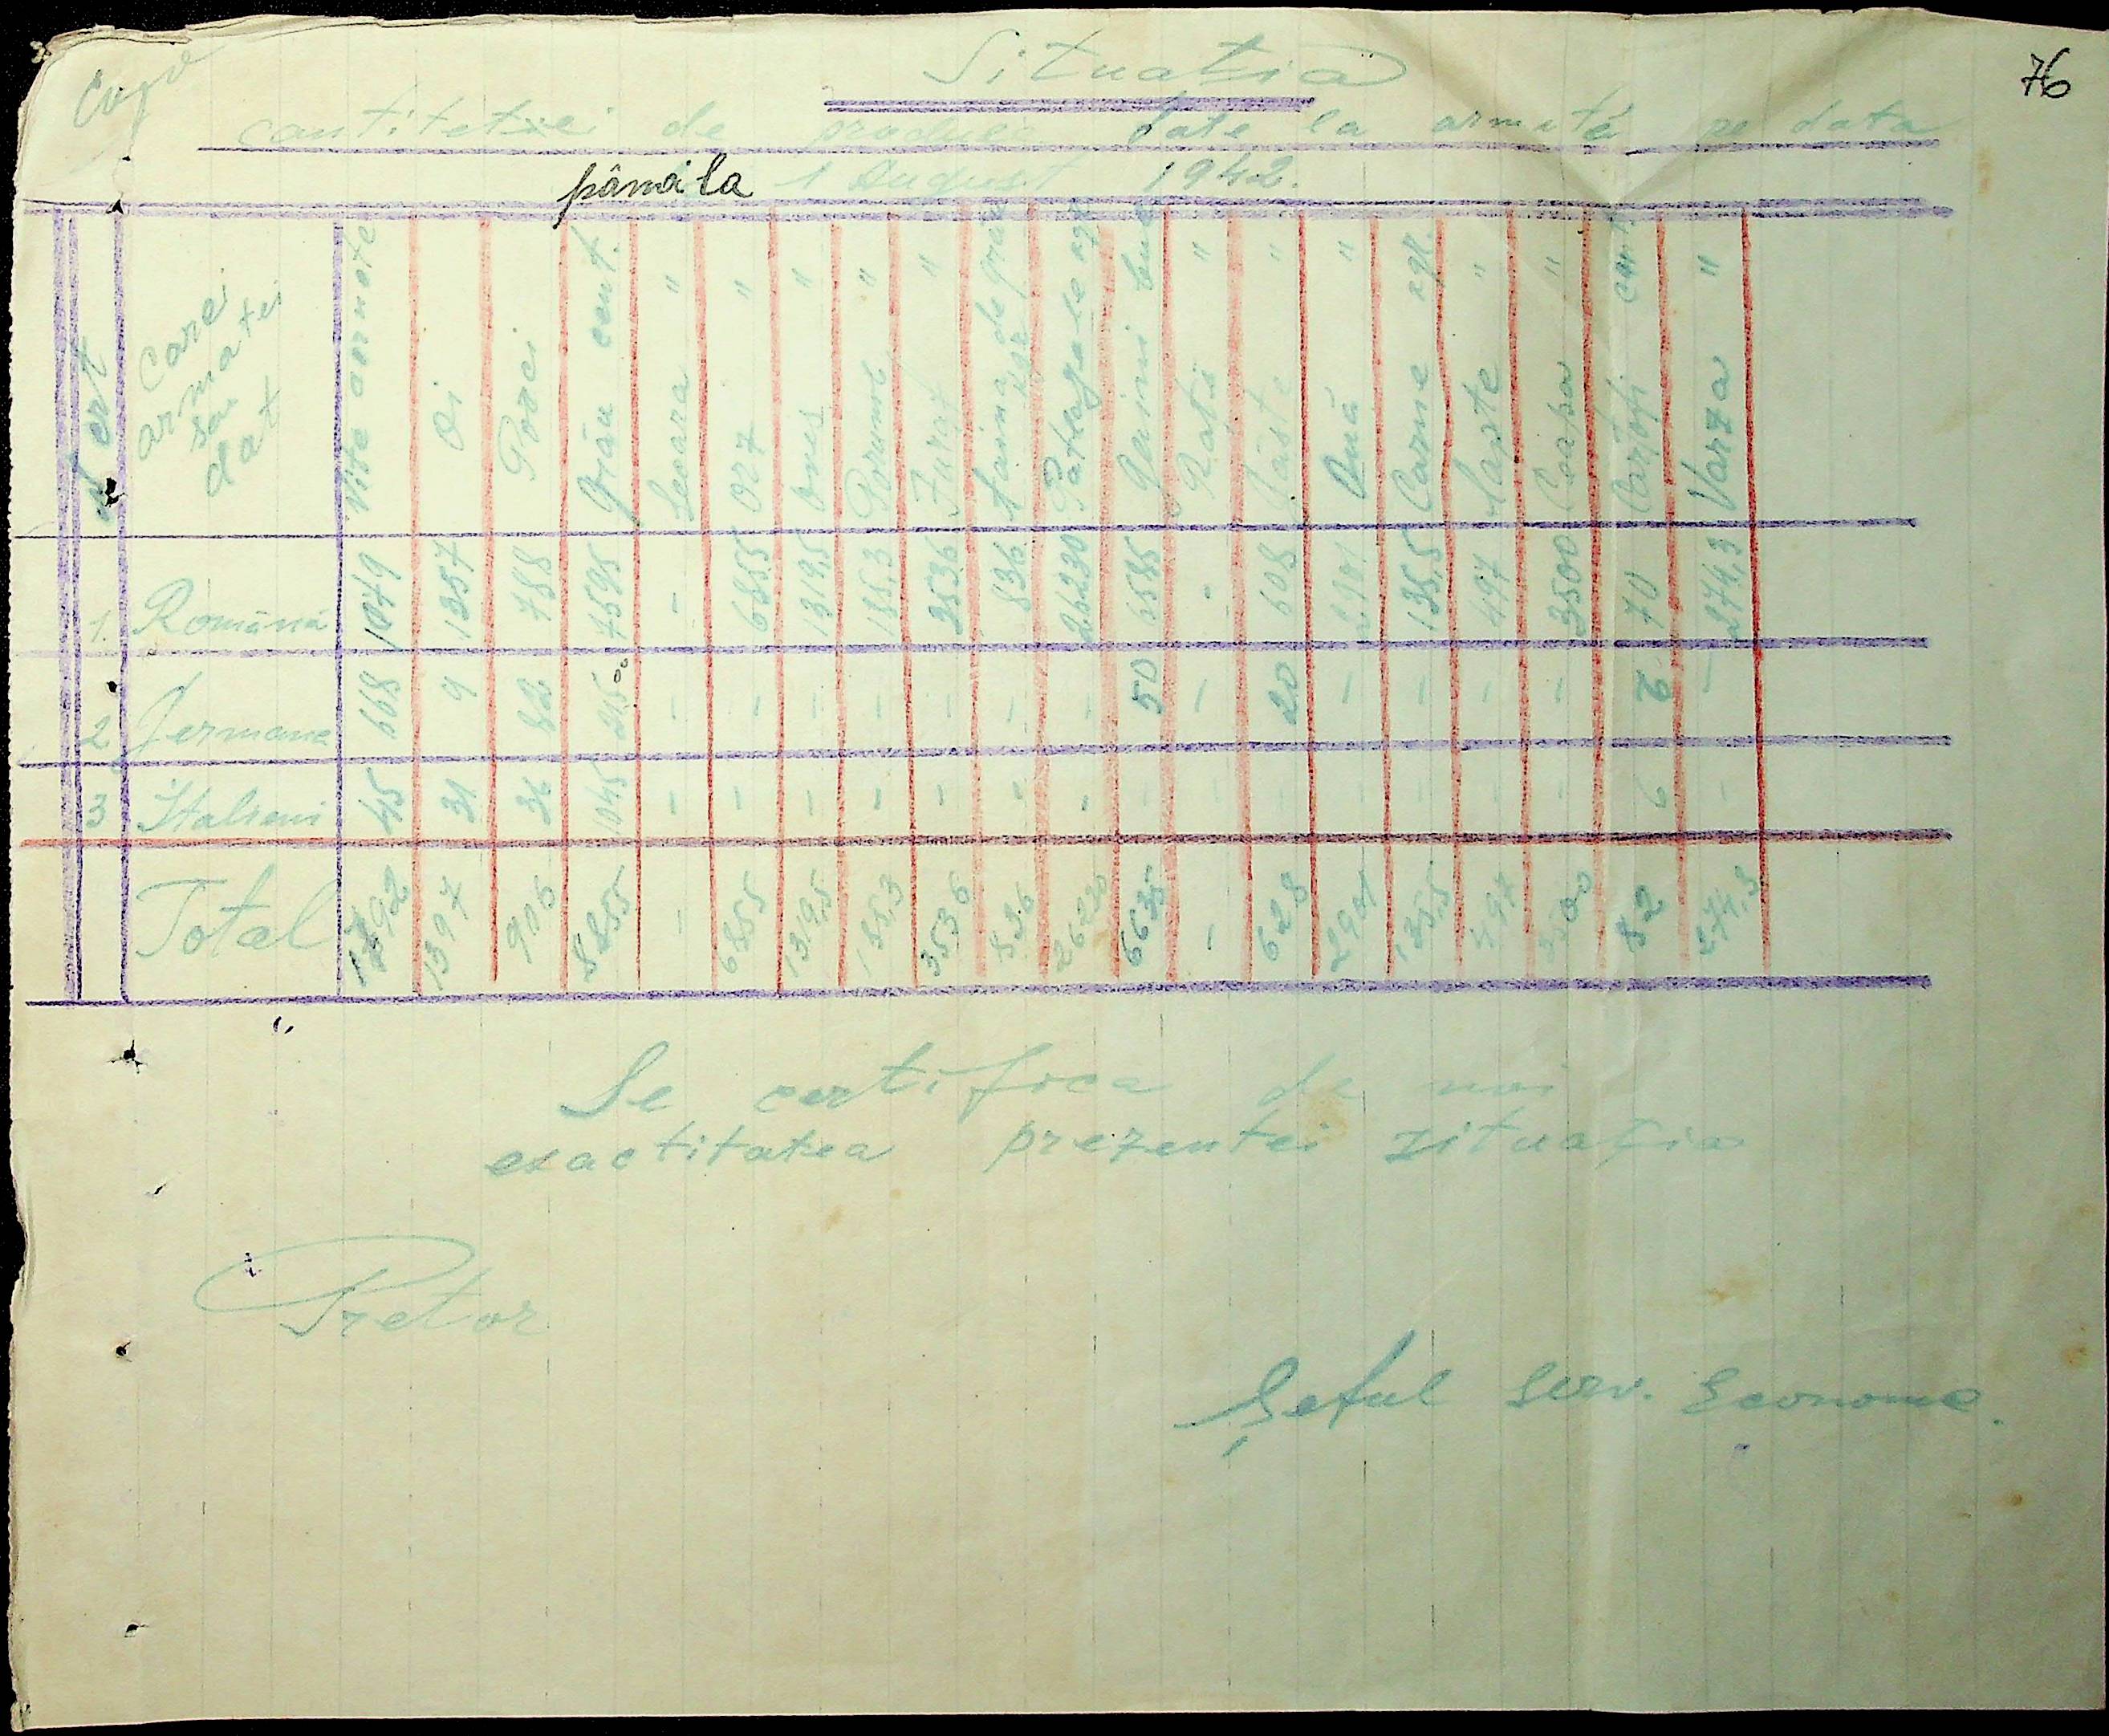 76
Copie
Situatia
cantitetsei de produse date la armată pe data
până la 1 August 1942.
N crt | Care armatei sa dat | Vite cornote | Oi | Porci | Grâu cent. | Secara " | Orz " | Oves " | Porumb " | Furaj " | Faina de grâu kgr | Patlagele kgr | Gaini buc | Rate " | Gâste " | Ouă " | Carne kgr. | Lapte " | Ceapa " | Cartofi cent. | Varza "
1. Română | 1079 | 1357 | 788 | 7595 | - | 6855 | 1319,5 | 185,3 | 3536 | 836 | 26230 | 6585 | - | 608 | 2901 | 135,5 | 497 | 3500 | 70 | 274,3
2 Germana | 668 | 9 | 82 | 215 | - | - | - | - | - | - | - | 50 | - | 20 | - | - | - | - | 6 | -
3 Italieni | 45 | 31 | 36 | 1045 | - | - | - | - | - | - | - | - | - | - | - | - | - | - | 6 | -
Total | 1792 | 1397 | 906 | 8855 | - | 6855 | 1319,5 | 185,3 | 3536 | 836 | 26230 | 6635 | - | 628 | 2901 | 135,5 | 497 | 3500 | 82 | 274,3
Se certifica de noi
exactitatea prezentei zituația
Pretor
Șeful Serv. Econome.